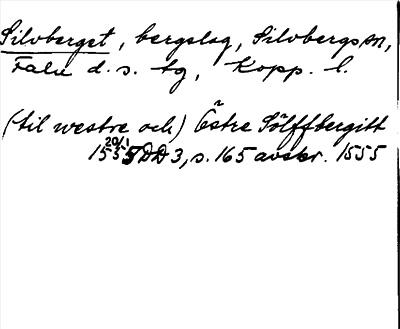 Silvberget, bergslag, Silvbergs sn,
Falu d. s. tg, Kopp. l.
(til westre och) Östre Sölffbergitt
20/1
1555 DD 3, s. 165 avskr. 1555